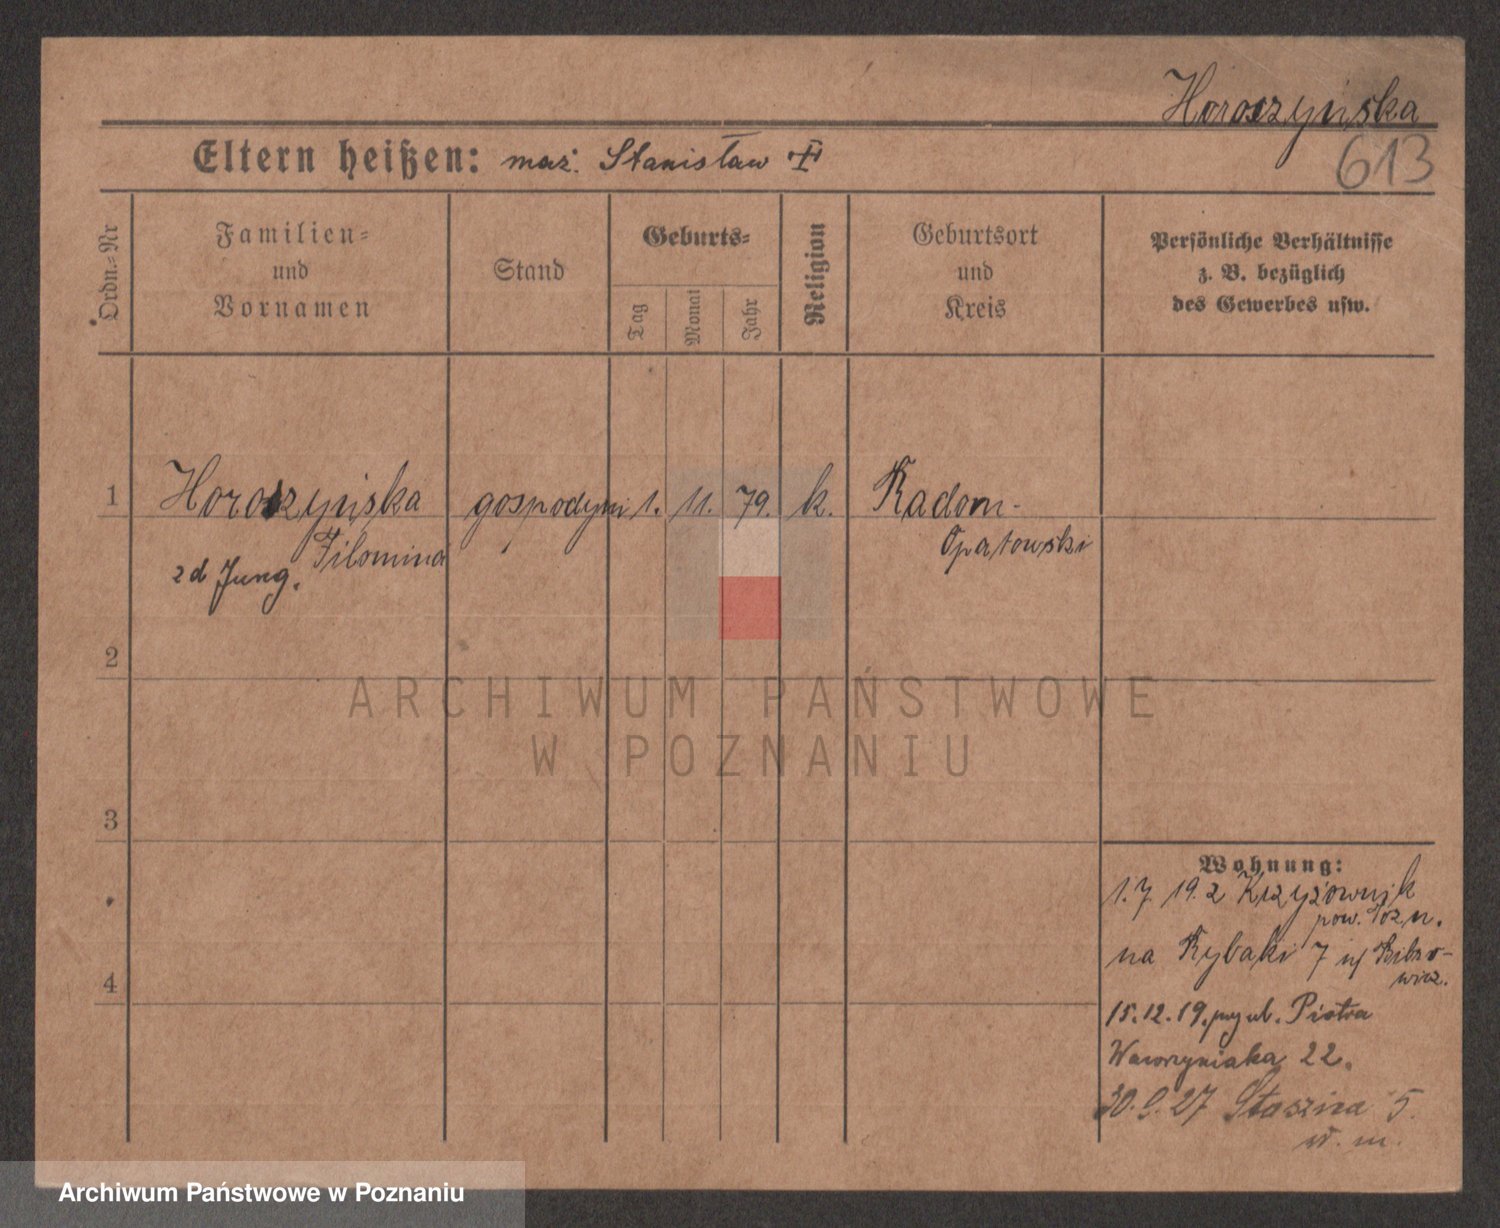 Horoszyńska
Eltern heißen: mąż. Stanisław
613
Ordn.-Nr
Familien-
und
Vornamen
Stand
Geburts-
Tag
Monat
Jahr
Religion
Geburtsort
und
Kreis
Persönliche Verhältnisse
z. B. bezüglich
des Gewerbes usw.
1 Horoszyńska gospodyni 1. 11. 79. k. Radom-
Filomina Opatowski
zd Jung.
2
3
4
ARCHIWUM PAŃSTWOWE
W POZNANIU
Wohnung:
1.7 19.2 Krzyżownik
pow. Pozn.
na Rybaki 7
wicz.
15.12.19. ul. Piotra
Wawrzyniaka 22.
30.9.27 Staszica 5.
w. m.
Archiwum Państwowe w Poznaniu